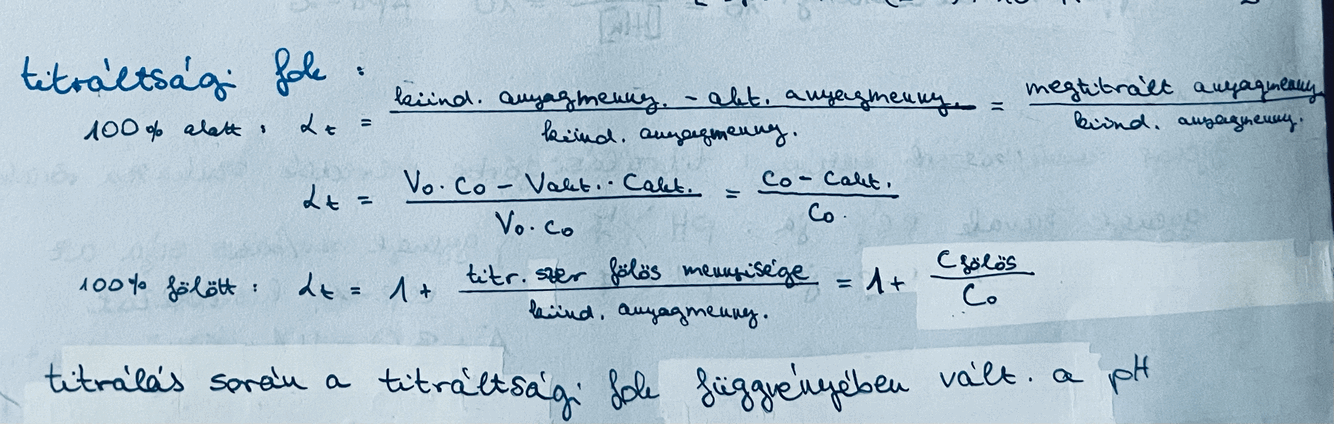 titráltsági fok :
100% alatt : αt = kiind. anyagmenny. - akt. anyagmenny. / kiind. anyagmenny. = megtitrált anyagmenny. / kiind. anyagmenny.
αt = V0 · C0 - Vakt. · Cakt. / V0 · C0 = C0 - Cakt. / C0
100% fölött : αt = 1 + titr. szer fölös mennyisége / kiind. anyagmenny. = 1 + Cfölös / C0
titrálás során a titráltsági fok függvényében vált. a pH